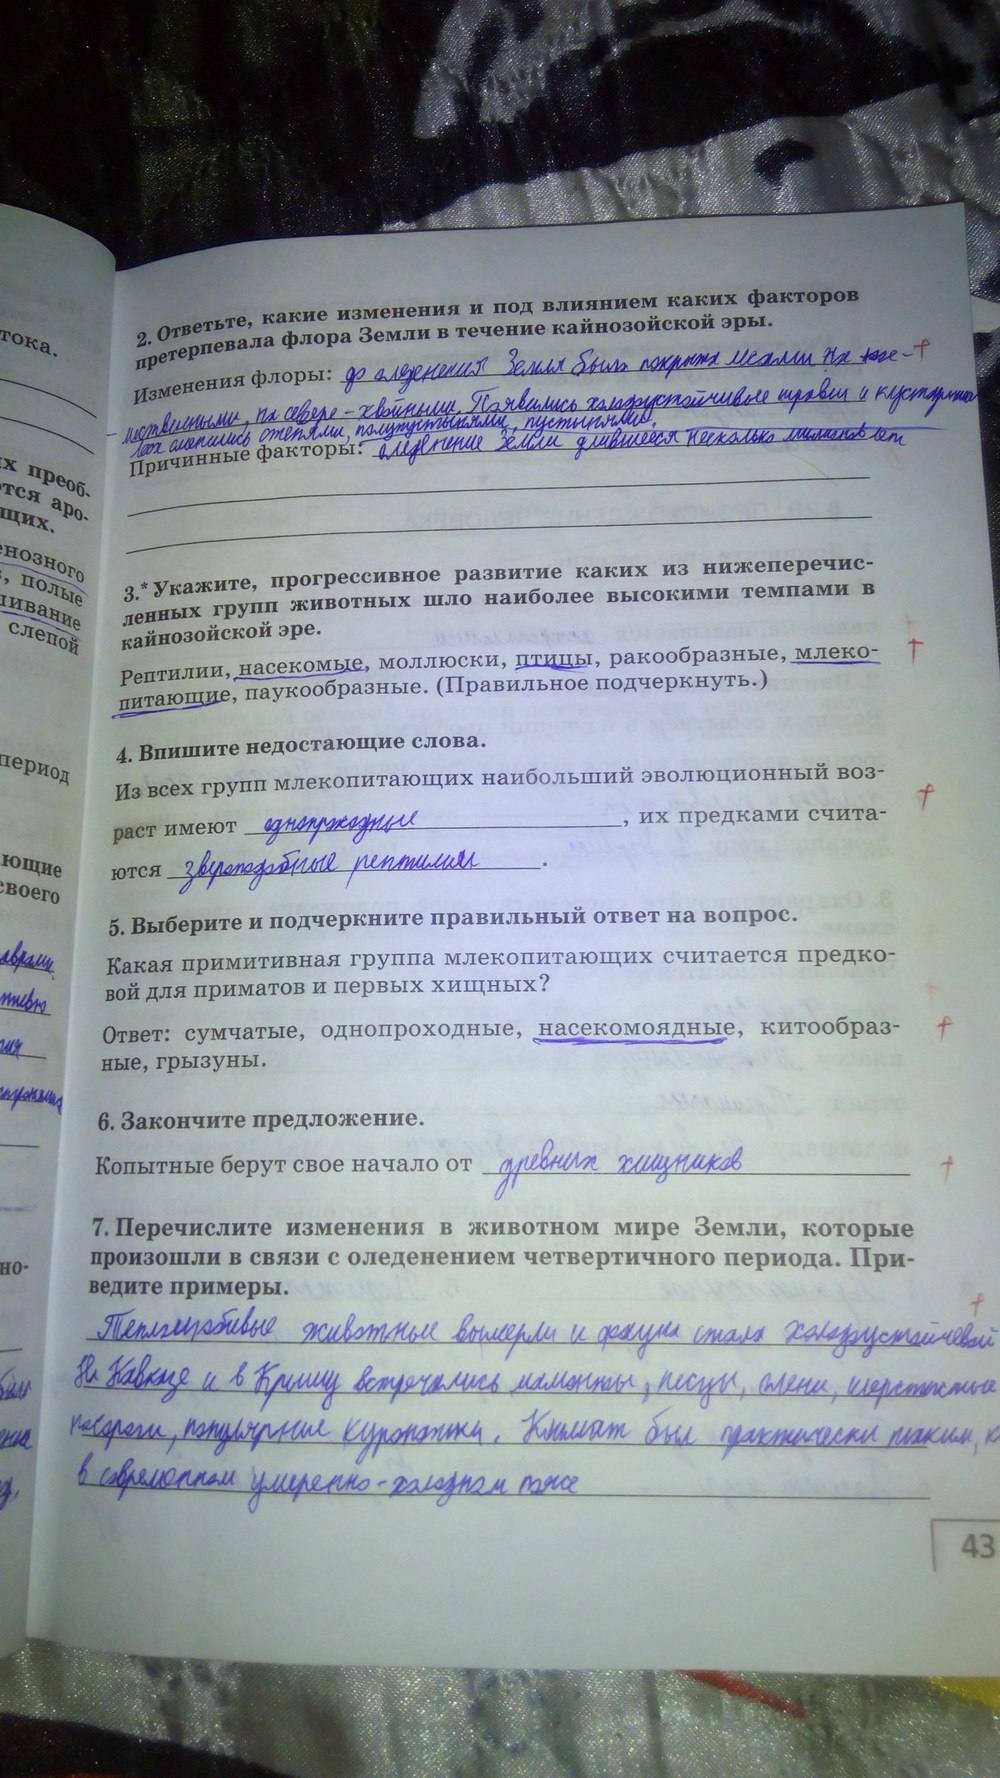 тока.
их преоб-
ются аро-
щих.
енозного
, полые
шивание
слепой
период
ающие
своего
но-
2. Ответьте, какие изменения и под влиянием каких факторов
претерпевала флора Земли в течение кайнозойской эры.
Изменения флоры: до оледенения Земля была покрыта лесами. На юге -
лиственными, на севере - хвойными. Появились холодоустойчивые травы и кустарники
леса сменились степями, полупустынями, пустынями.
Причинные факторы: оледенение Земли длившееся несколько миллионов лет
3.* Укажите, прогрессивное развитие каких из нижеперечис-
ленных групп животных шло наиболее высокими темпами в
кайнозойской эре.
Рептилии, насекомые, моллюски, птицы, ракообразные, млеко-
питающие, паукообразные. (Правильное подчеркнуть.)
4. Впишите недостающие слова.
Из всех групп млекопитающих наибольший эволюционный воз-
раст имеют однопроходные, их предками счита-
ются звероподобные рептилии.
5. Выберите и подчеркните правильный ответ на вопрос.
Какая примитивная группа млекопитающих считается предко-
вой для приматов и первых хищных?
Ответ: сумчатые, однопроходные, насекомоядные, китообраз-
ные, грызуны.
6. Закончите предложение.
Копытные берут свое начало от древних хищников
7. Перечислите изменения в животном мире Земли, которые
произошли в связи с оледенением четвертичного периода. При-
ведите примеры.
Теплолюбивые животные вымерли и фауна стала холодоустойчивой
На Кавказе и в Крыму встречались мамонты, песцы, олени, шерстистые
носороги, полярные куропатки. Климат был практически таким, к
в современном умеренно-холодном поясе
43